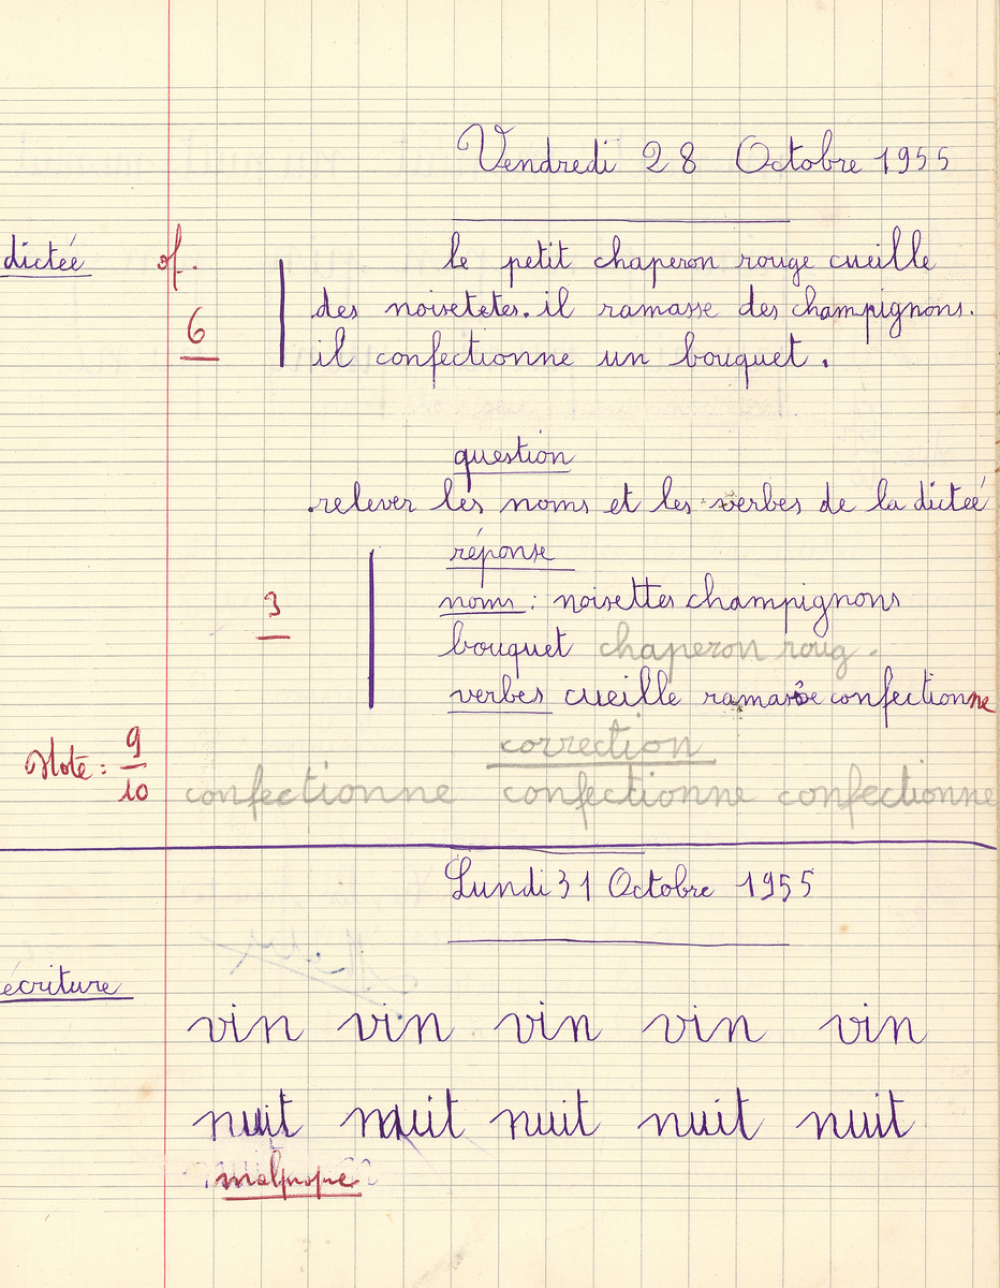 Vendredi 28 Octobre 1955
dictée of. le petit chaperon rouge cueille
6 des noisetetes. il ramasse des champignons.
il confectionne un bouquet.
question
relever les noms et les verbes de la dicteé
réponse
3 noms : noisettes champignons
bouquet chaperon roug.
verbes cueille ramasse confectionne
correction
Note : 9/10 confectionne confectionne confectionne
Lundi 31 Octobre 1955
écriture
vin vin vin vin vin
nuit nuit nuit nuit nuit
malpropre